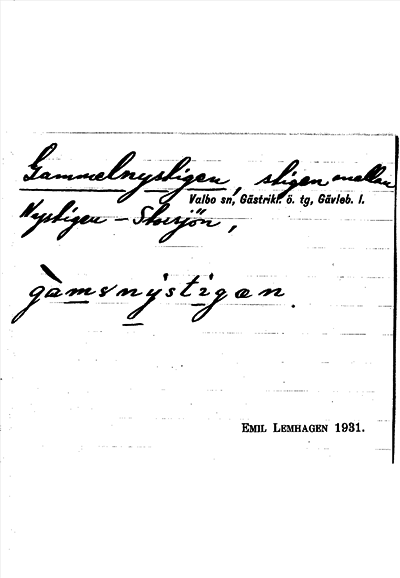 Gammelnystigen, stigen mellan
Valbo sn, Gästrikl. ö. tg, Gävleb. l.
Nystigen – Storsjön,
gàmsnỳstigæn.
EMIL LEMHAGEN 1931.